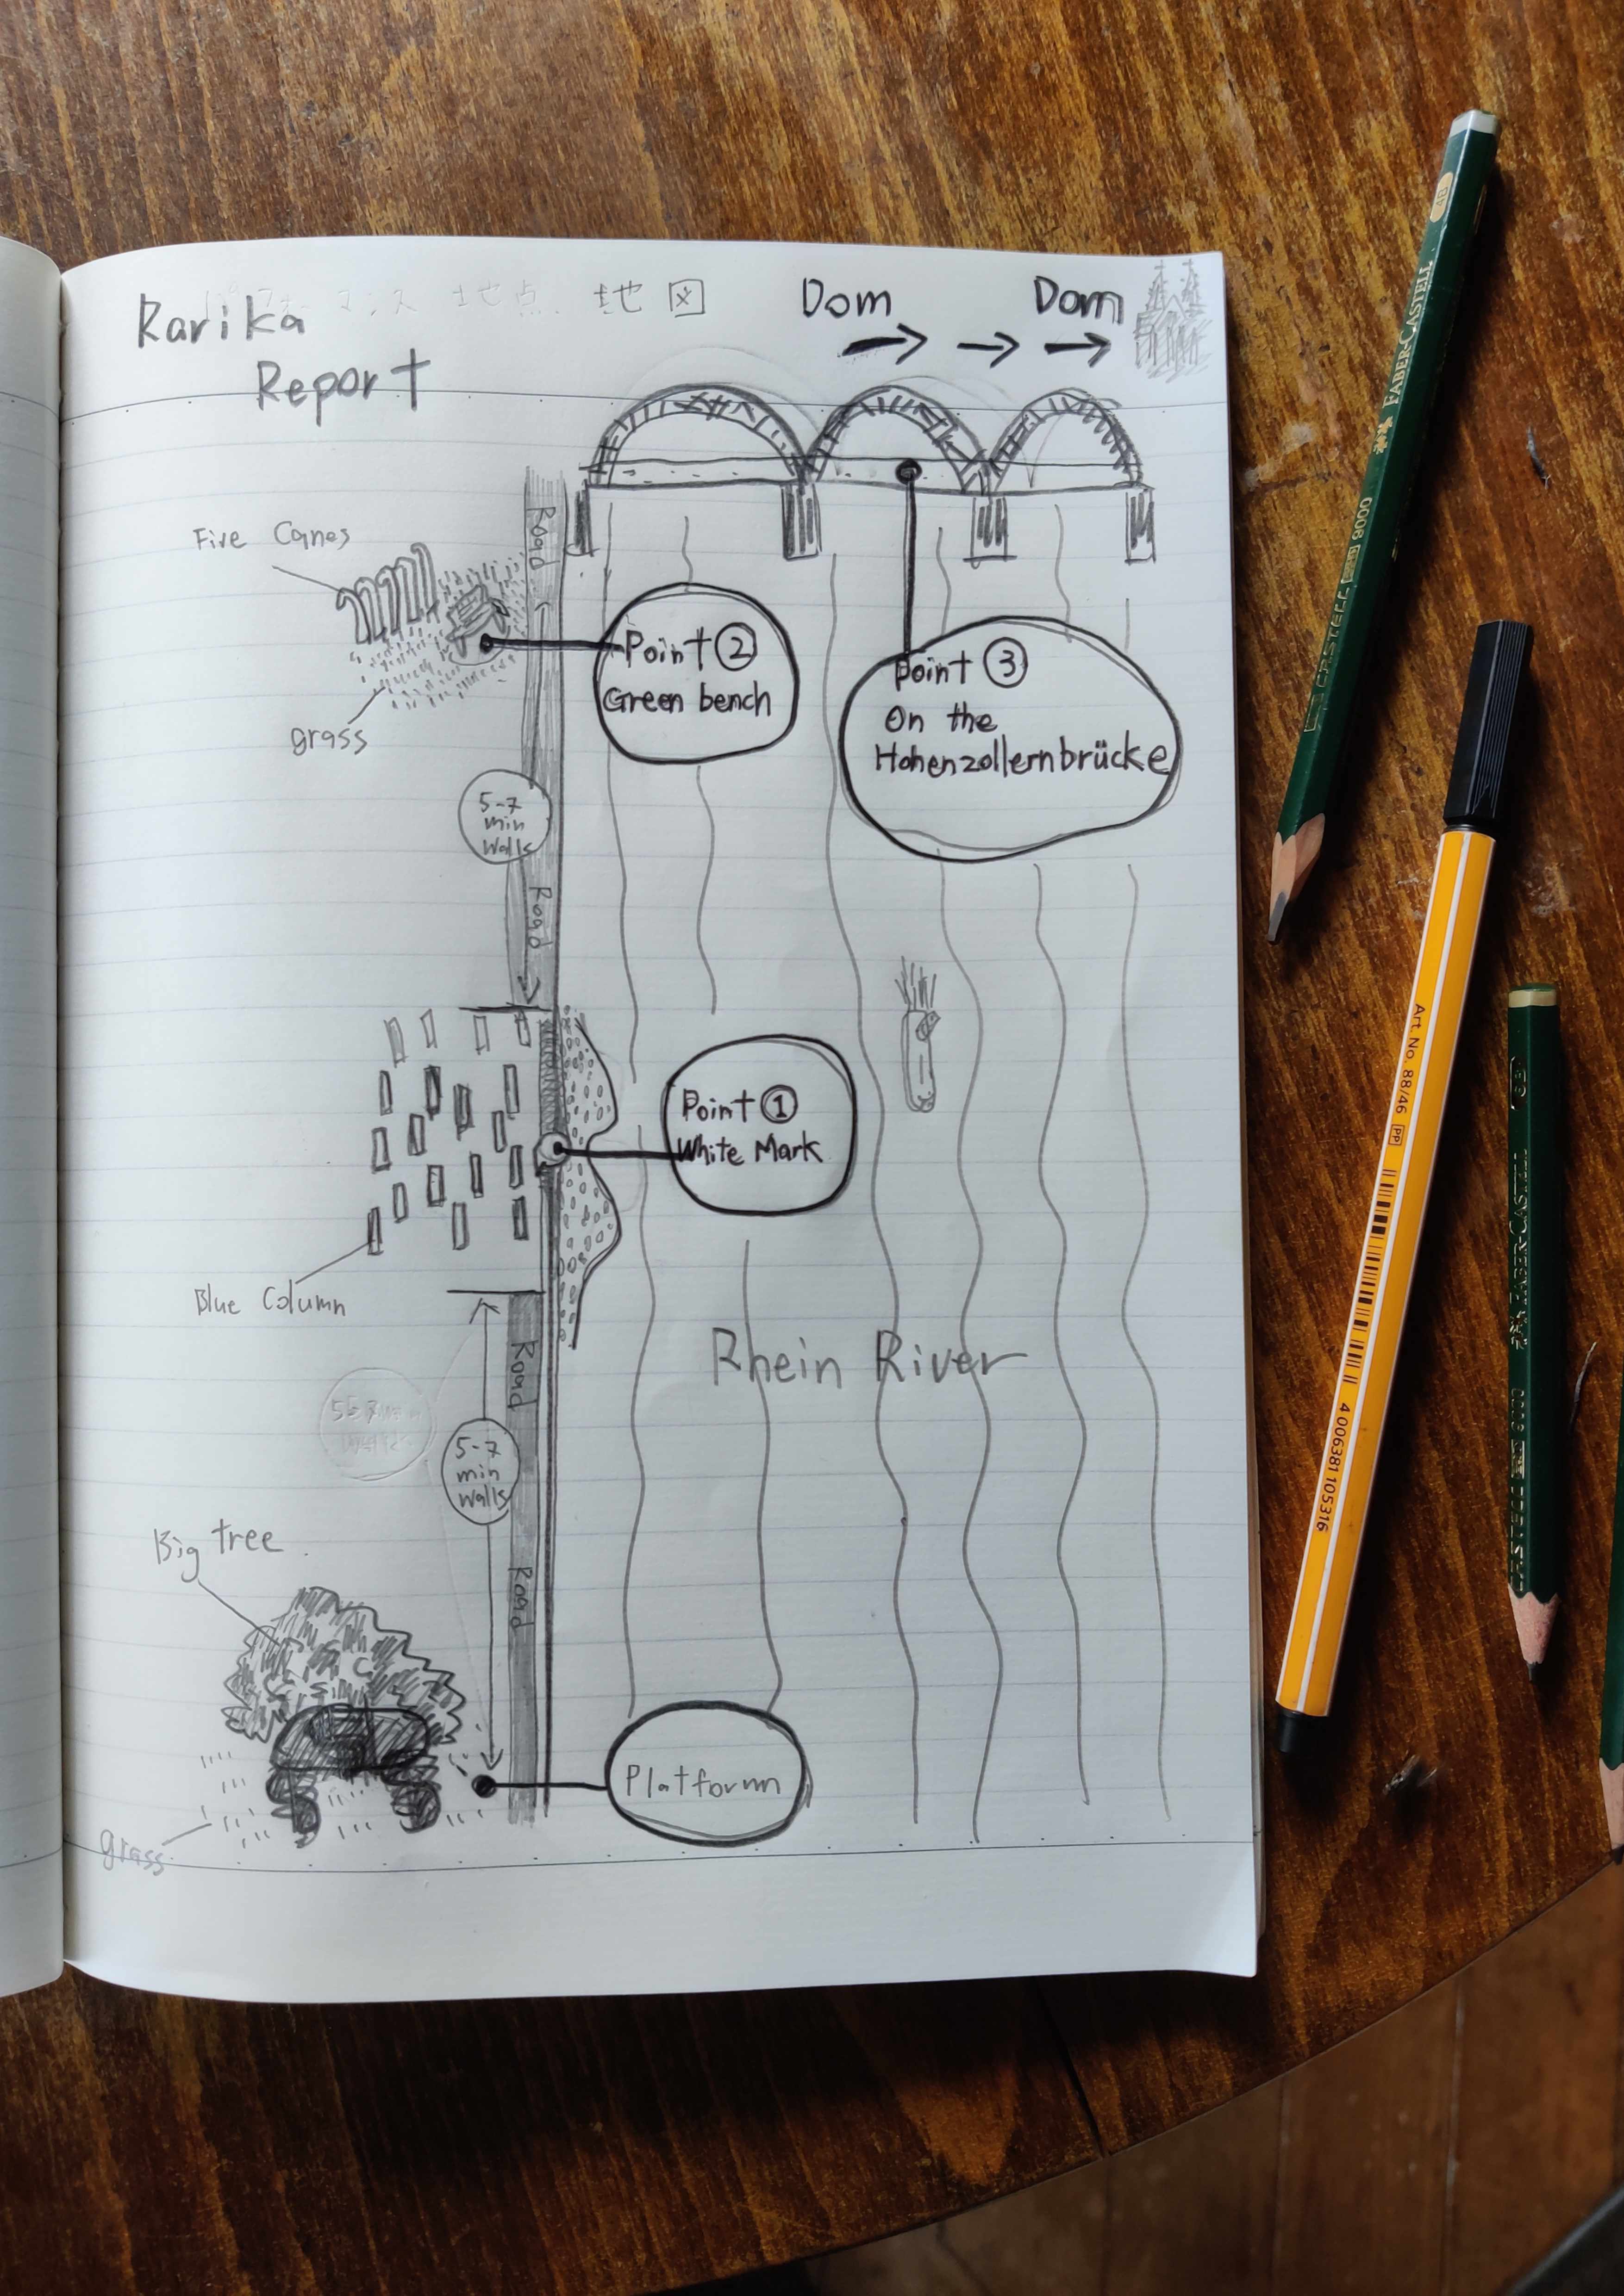 Rarika
Report
パフォーマンス 地点 地図
Dom
Dom
Road
Five Canes
Point ②
Green bench
Point ③
On the
Hohenzollernbrücke
grass
5-7
min
Walk
Road
Point ①
White Mark
Blue Column
Rhein River
Road
5-7
min
Walk
Big tree
Road
Platform
grass
FABER-CASTELL
CASTELL 9000
Art. No. 88/46 PP
4 006381 105316
FABER-CASTELL
CASTELL 9000